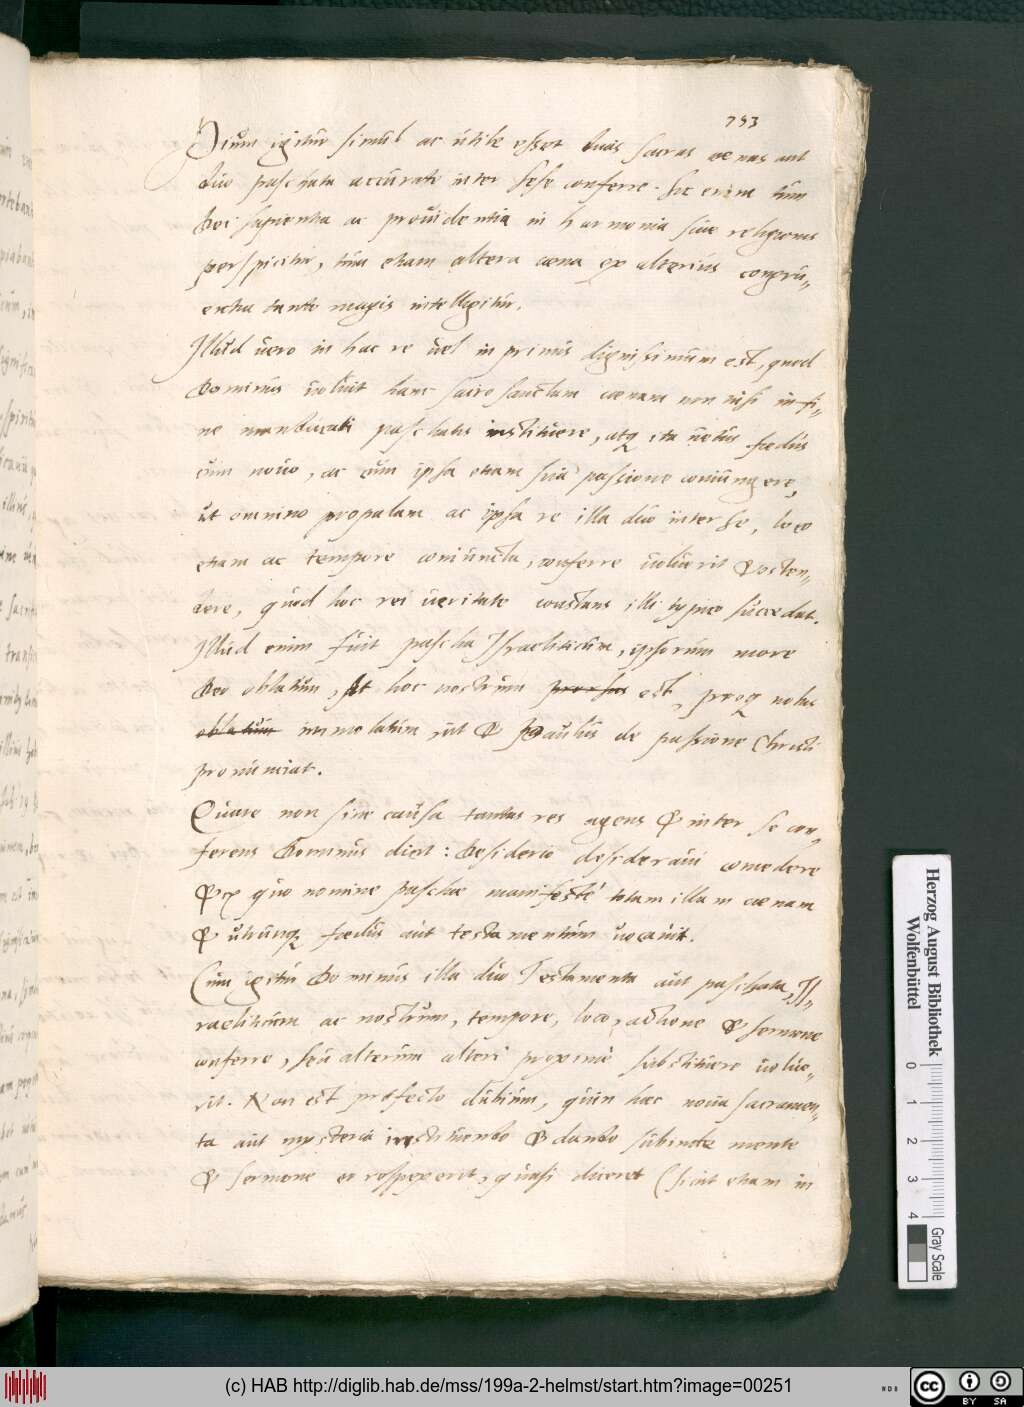 733
Pium igitur simul ac utile esset duas sacras coenas aut
duo paschata accurate inter sese conferre. Sic enim tum
Dei sapientia ac providentia in harmonia suae religionis
perspicitur, tum etiam altera coena ex alterius congru„
entia tanto magis intelligitur.
Illud vero in hac re vel in primis dignissimum est, quod
Dominus voluit hanc sacrosanctam coenam non nisi in fi„
ne manducati paschatis instituere, atq ita vetus foedus
cum novo, ac cum ipsa etiam sua passione coniungere,
ut omnino propalam ac ipsa re illa duo inter se, loco
etiam ac tempore coniuncta, conferre voluerit & osten„
dere, quod hoc rei veritate constans illi typico succedat.
Illud enim fuit pascha Israeliticum, ipsorum more
Deo oblatum, At hoc nostrum prorsus est, proq nobis
oblatum immolatum, ut & Paulus de passione Christi
pronunciat.
Quare non sine causa tantas res agens & inter se con„
ferens Dominus dicit: Desiderio desideravi comedere
& quo nomine paschae manifesté totam illam coenam
& utrunq foedus aut testamentum vocavit.
Cum igitur Dominus illa duo Testamenta aut paschata, Is„
raeliticum ac nostrum, tempore, loco, actione & sermone
conferre, seu alterum alteri proxime substituere volue„
rit. Non est profecto dubium, quin haec nova sacramen„
ta aut mysteria instituendo & dando subinde mente
& sermone eo respexerit, quasi diceret (sicut etiam in
Herzog August Bibliothek
Wolfenbüttel
0 1 2 3 4
Gray Scale
(c) HAB http://diglib.hab.de/mss/199a-2-helmst/start.htm?image=00251
cc BY SA